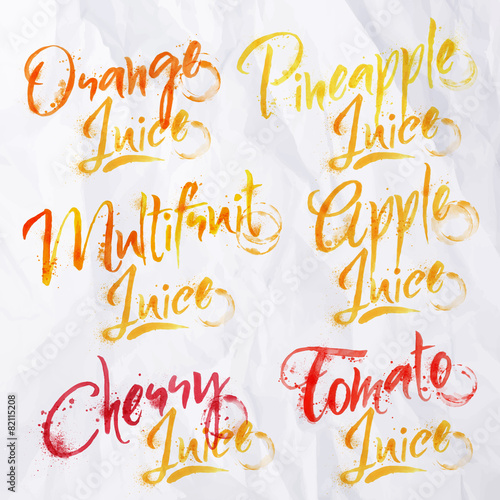 Orange
Juice
Pineapple
Juice
Multifruit
Juice
Apple
Juice
Cherry
Juice
Tomato
Juice
Adobe Stock | #82115208